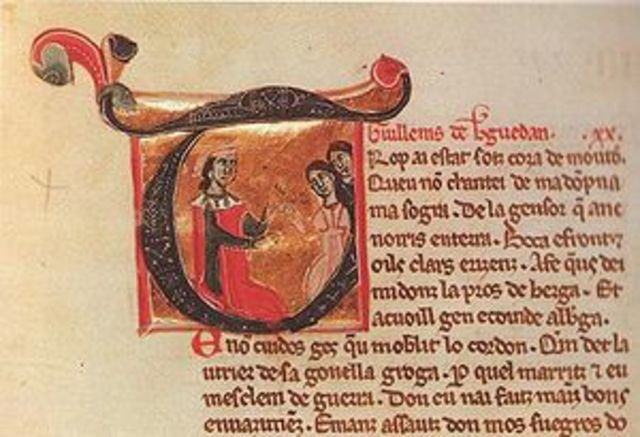 Guillems de berguedan. .xx.
T Rop ai estat sotz coza de mouto.
Queu nō chantei de madōpna
ma sogra. De la gensor q̄ anc
noiris enterra. Boca efront⁊
oilz clars errenz. Afe q̄us dei
midonz la pros de berga. Et
acuoill gen ecoinde albga.
E nō cuides ges q̄u moblit lo cordon. Qin det la
utrier de sa gonella groga. p quel marritz ⁊ eu
mesclem de guerra. Don eu nai faitz maitz bons
enuazimēz. Emanz assautz don mos fuegres do